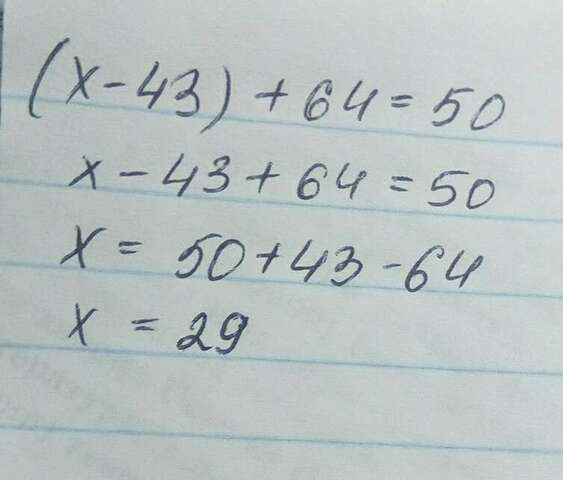 (x-43)+64=50
x-43+64=50
x=50+43-64
x=29